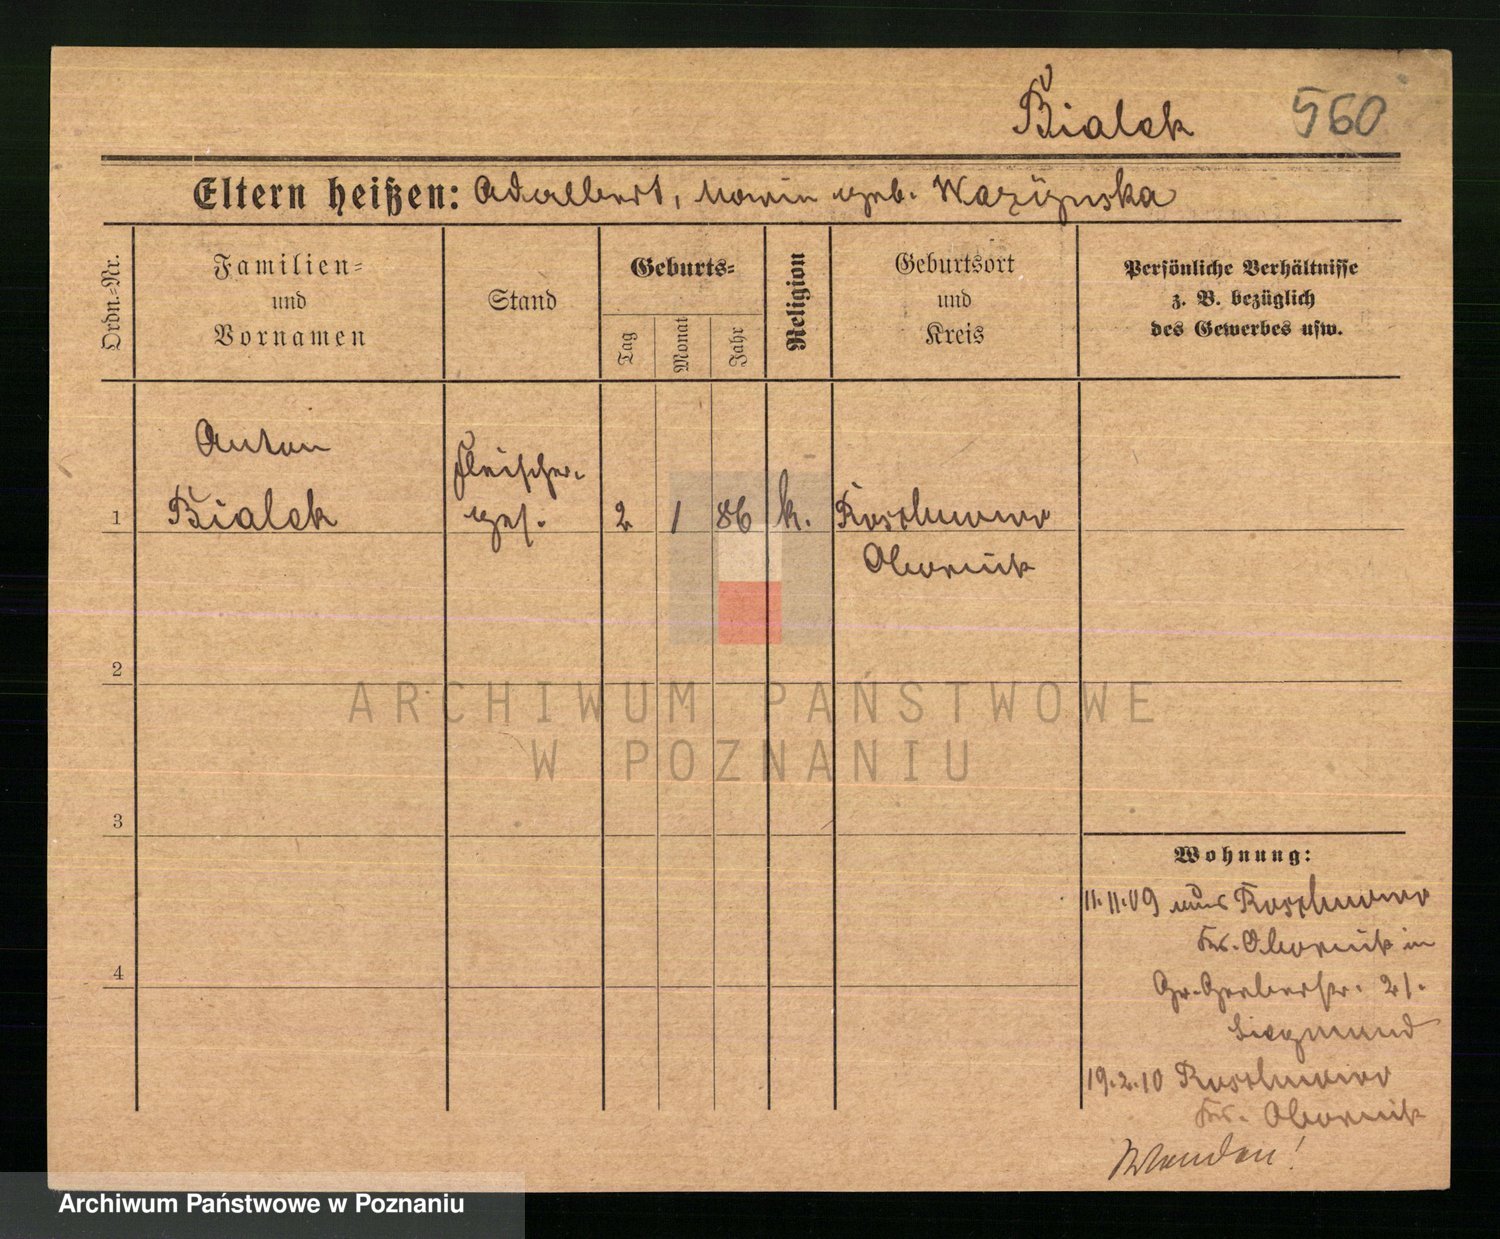 Bialek 560
Eltern heißen: Adalbert, Marie geb. Wazynska
Ordn.=Nr.
Familien=
und
Vornamen
Stand
Geburts=
Tag
Monat
Jahr
Religion
Geburtsort
und
Kreis
Persönliche Verhältnisse
z. B. bezüglich
des Gewerbes usw.
Anton
Fleischer-
1 Bialek ges. 2 1 86 k.
Obornik
2
ARCHIWUM PAŃSTWOWE
W POZNANIU
3
Wohnung:
11.11.09 aus
Kr. Obornik in
4 Gr. Gerberstr. 21.
Siegmund
19.2.10
Kr. Obornik
Wenden!
Archiwum Państwowe w Poznaniu